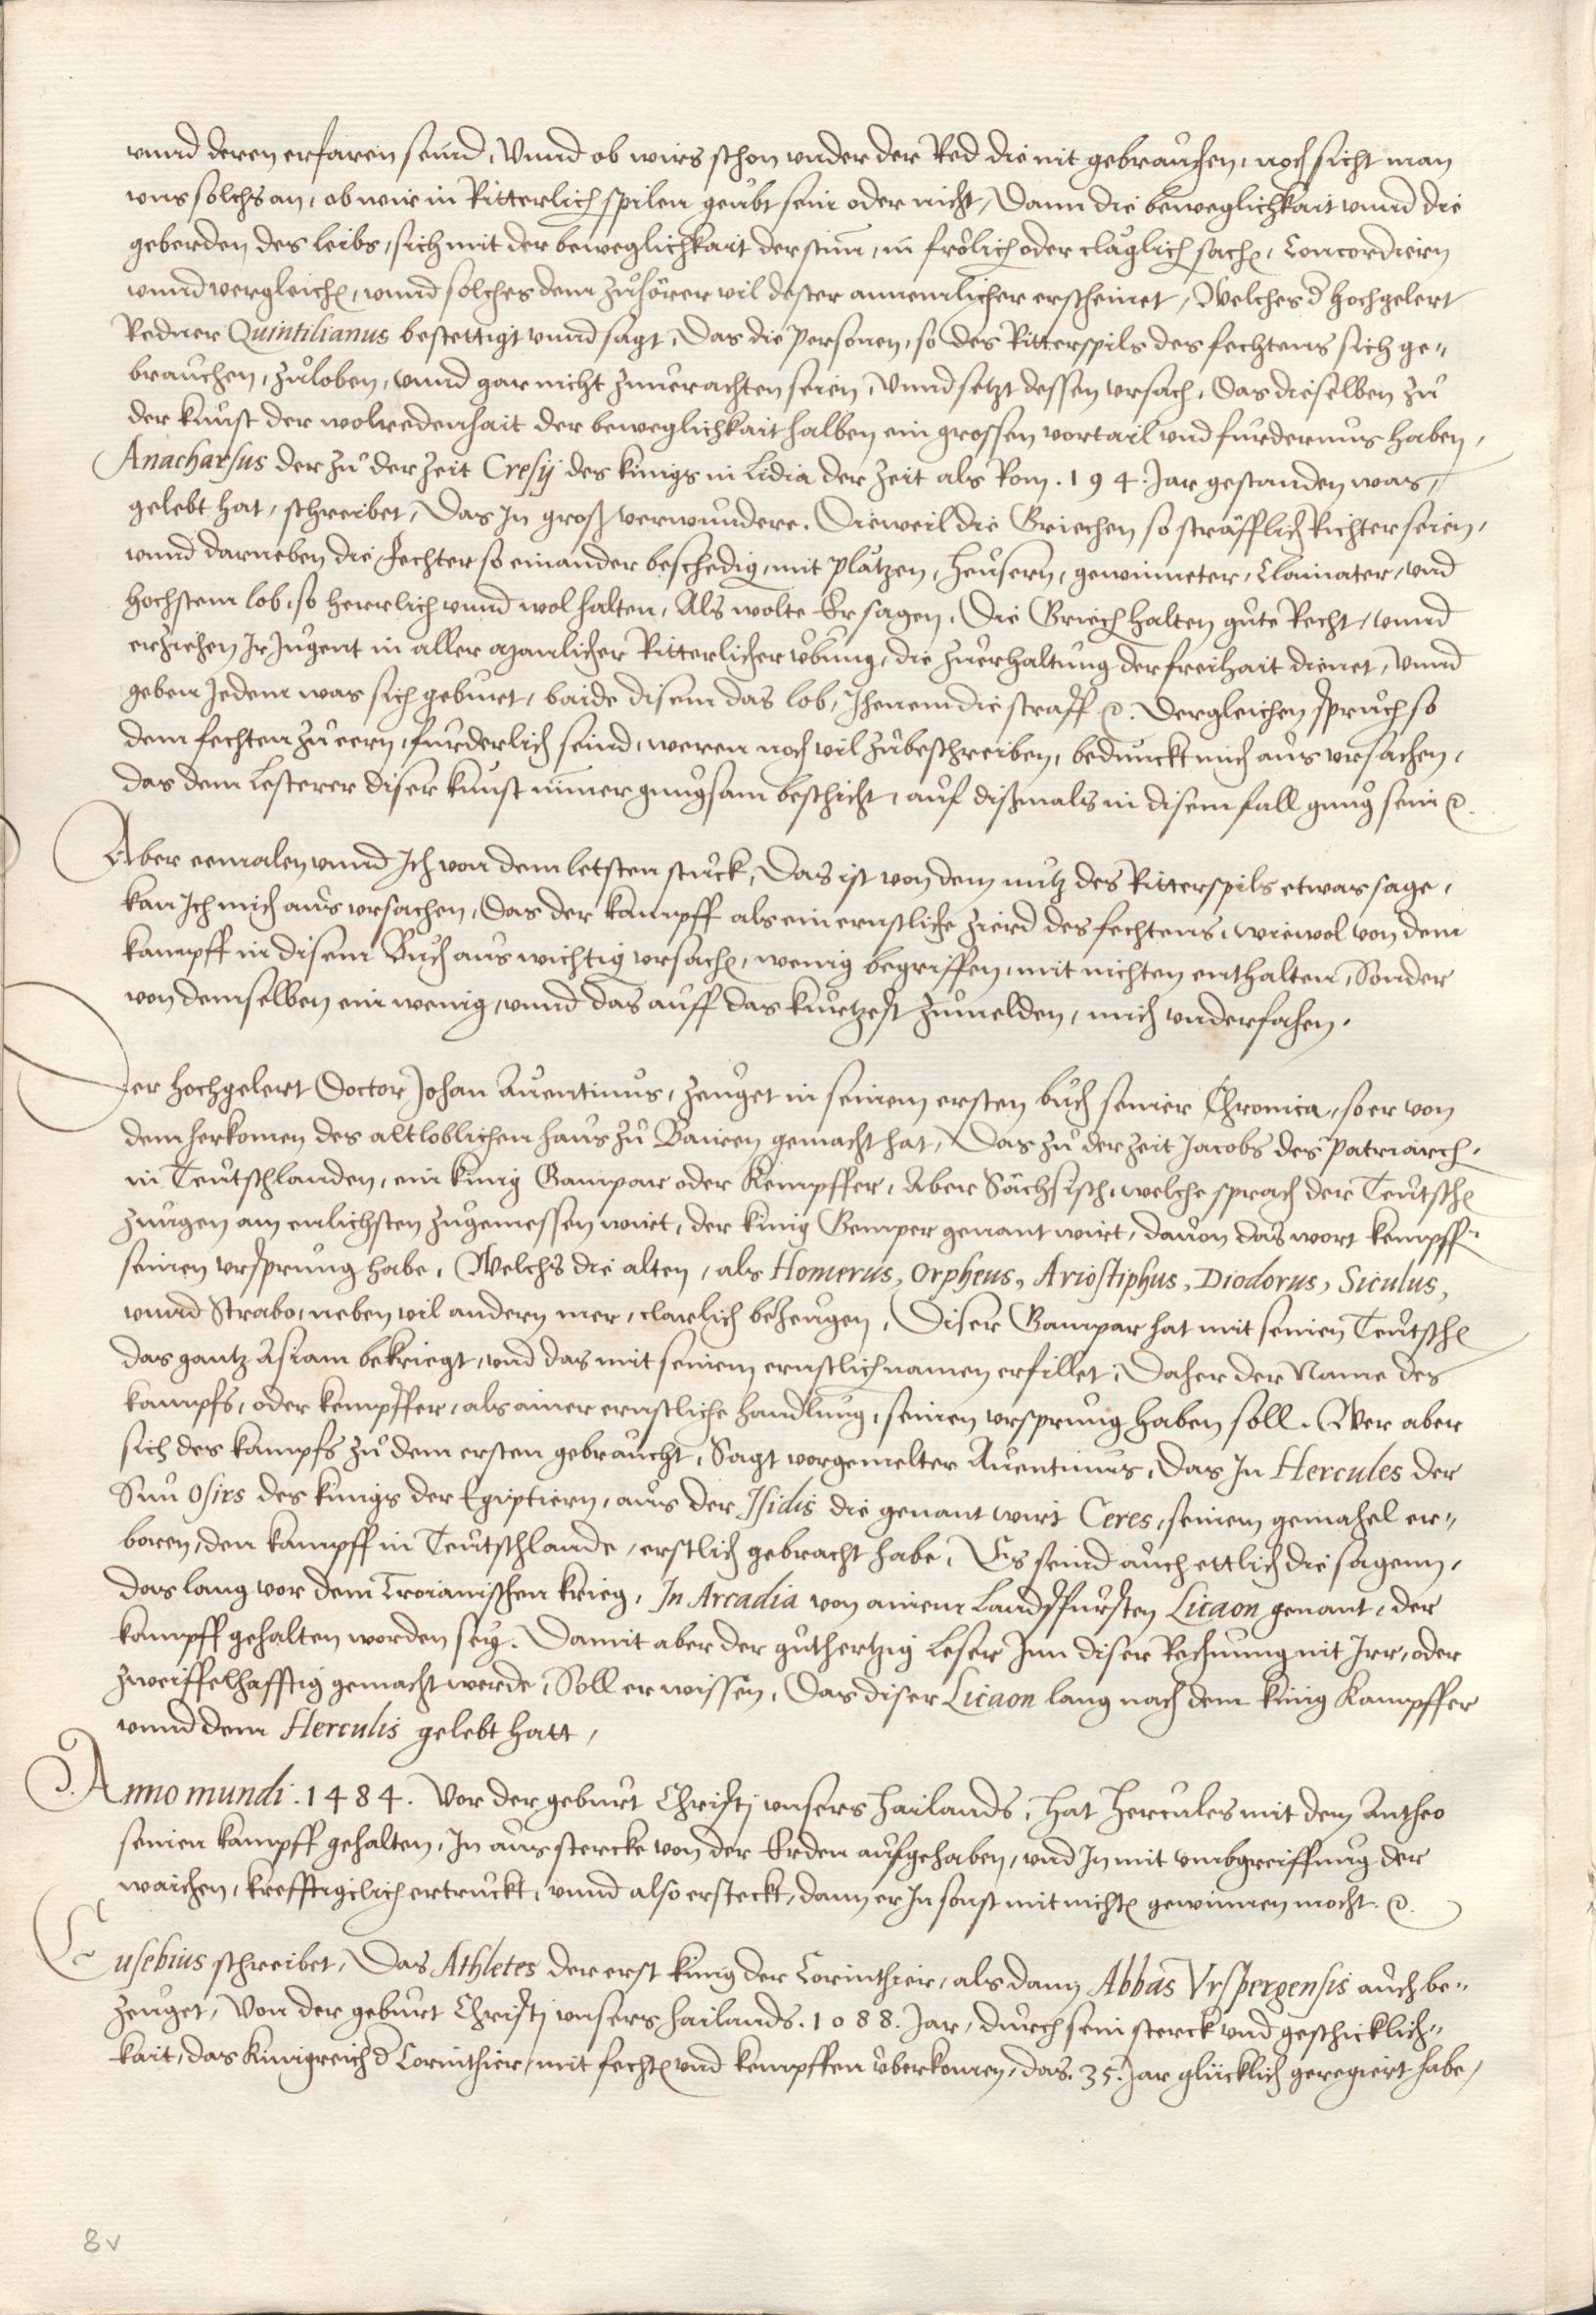 vnnd deren erfaren seind, Vnnd ob wirs schon vnder der Red die nit gebrauchen, noch sicht man
vns solchs an, ob wir in Ritterlich spilen geübt sein oder nicht, Dann die beweglichkait vnnd die
geberden des leibs, sich mit der beweglichkait der stim, in frölich oder cläglich sachen, Concordiern
vnnd vergleichen, vnnd solches dem zuhörer vil dester annemlicher erscheinet, Welches d hochgelert
Redner Quintilianus bestettigt vnnd sagt, Das die personen, so des Ritterspils des fechtens sich ge„
brauchen, zuloben, vnnd gar nicht zuuerachten seien, Vnnd setzt dessen vrsach, Das dieselben zu
der kunst der wolredenhait der beweglichkait halben ein grossen vortail vnd furdernus haben,
Anacharsus der zu der zeit Cresij des kinigs in Lidia der zeit als Rom .194. Jar gestanden was,
gelebt hat, schreibet, Das In groß verwundere. Dieweil die Griechen so sträfflich Richter seien,
vnnd darneben die Fechter so einander beschedig, mit plätzen, heusern, gewinneter, Clainater, vnd
hochstem lob, so herrlich vnnd wol halten, Als wolte Er sagen, Die Griech halten gute Recht, vnnd
erziehen Ir Jugent in aller manlicher Ritterlicher vbung, die zuerhaltung der freihait dienet, Vnnd
geben Jedem was sich geburet, baide disem das lob, Jhenem die straff &. Dergleichen spruch so
dem fechten zu eern, furderlich seind, weren noch vil zubeschreiben, bedunckt mich aus vrsachen,
das dem Lesterer diser kunst nimer gnugsam beschicht, auf dißmals in disem fall gnug sein &.
Aber eemalen vnnd Ich von dem letsten stuck, Das ist von dem nutz des Ritterspils etwas sage,
kan Ich mich aus vrsachen, Das der kampff als ein ernstliche zierd des fechtens, wiewol von dem
kampff in disem Buch aus wichtig vrsachen, wenig begriffen, mit nichten enthalten, Sonder
von demselben ein wenig, vnnd das auff das kurtzest zumelden, mich vnderfahen.
Der hochgelert Doctor Johan Auentinus, zeuget in seinem ersten buch seiner Chronica, so er von
dem herkomen des altloblichen haus zu Bairen gemacht hat, Das zu der zeit Jacobs des patriarch,
in Teutschlanden, ein kinig Gampar oder Kempffer, Aber Sächsisch, welche sprach der Teutschen
zungen am enlichsten zugemessen wirt, der kinig Gemper genant wirt, dauon das wort kempff„
seinen vrsprung habe, Welchs die alten, als Homerus, Orpheus, Ariostiphus, Diodorus, Siculus,
vnnd Strabo, neben vil andern mer, clarlich bezeugen, Diser Gampar hat mit seinen Teutschen
das gantz Asiam bekriegt, vnd das mit seinem ernstlich namen erfillet, Daher der Name des
kampfs, oder kempffer, als ainer ernstliche handlung, seinen vrsprung haben soll. Wer aber
sich des kampfs zu dem ersten gebraucht, Sagt vorgemelter Auentinus, Das In Hercules der
Sun Osirs des kunigs der Egiptiern, aus der Isidis die genant wirt Ceres, seinem gemahel er„
boren, den kampff in Teutschlande, erstlich gebracht habe, Es seind auch ettlich die sagenn,
das lang vor dem Troianischen krieg, In Arcadia von ainem Landsfursten Licaon genant, der
kampff gehalten worden sey. Damit aber der guthertzig leser Inn diser Rechnung nit Irr, oder
zweiffelhafftig gemacht werde, Soll er wissen, Das diser Licaon lang nach dem kinig Kampffer
vnnd dem Herculis gelebt hatt,
Anno mundi .1484. Vor der geburt Christj vnsers hailands, hat Hercules mit dem Antheo
seinen kampff gehalten, In aus stercke von der Erden aufgehaben, vnd In mit vmbgreiffung der
waichen, krefftigclich ertruckt, vnnd also ersteckt, dann er In sonst mit nichten gewinnen mocht. &.
Eusebius schreibet, Das Athletes der erst kunig der Corinthier, als dann Abbas Vrspergensis auch be„
zeuget, Von der geburt Christj vnsers hailands .1088. Jar, durch sein sterck vnd geschicklich„
kait, das kunigreich d Corinthier, mit fechten vnd kempffen vberkomen, das .35. Jar glücklich geregiert habe,
8v